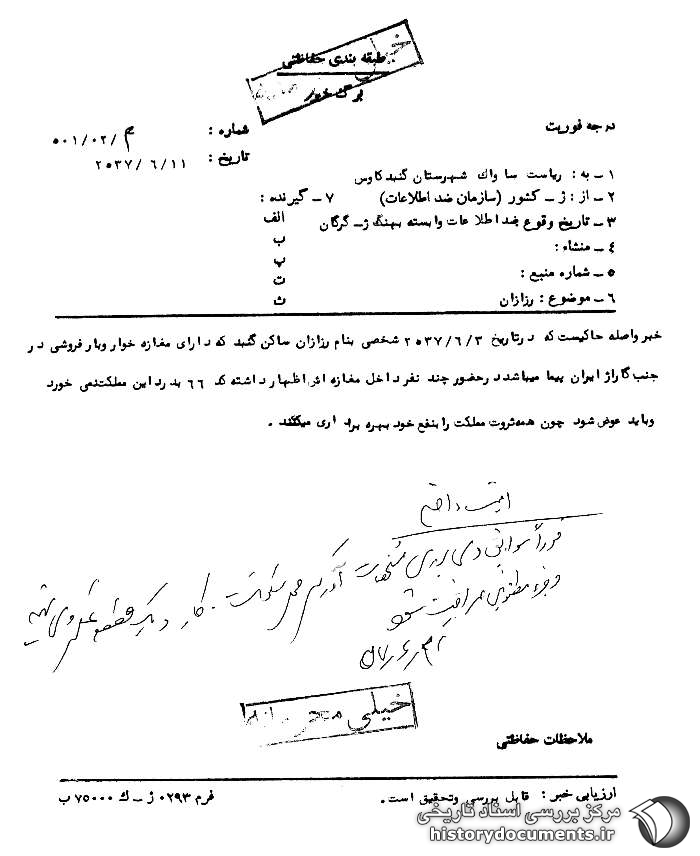 خیلی محرمانه
طبقه بندی حفاظتی
برگ خبر
درجه فوریت
شماره : ۵۰۱/۰۲/م
تاریخ : ۲۵۳۷/۶/۱۱
۱ـ به : ریاست ساواك شهرستان گنبدکاوس
۲ـ از : ژـ کشور (سازمان ضد اطلاعات) ۷ـ گیرنده :
۳ـ تاریخ وقوع ضد اطلاعات وابسته بهنگ ژـ گرگان الف
۴ـ منشاء : ب
پ
۵ـ شماره منبع : ت
۶ـ موضوع : رزازان ث
خبر واصله حاکیست که در تاریخ ۲۵۳۷/۶/۳ شخصی بنام رزازان ساکن گنبد که دارای مغازه خوار وبار فروشی در
جنب گاراژ ایران پیما میباشد در حضور چند نفر داخل مغازه اش اظهار داشته که ۶۶ بدرد این مملکت نمی خورد
وباید عوض شود چون همه ثروت مملکت را بنفع خود بهره برداری میکنند .
فوراً سوابق
خیلی محرمانه
ملاحظات حفاظتی
ارزیابی خبر : قابل بررسی وتحقیق است . فرم ۰۲۹۳ ژـ ك ۷۵۰۰۰ ب
مرکز بررسی اسناد تاریخی
historydocuments.ir